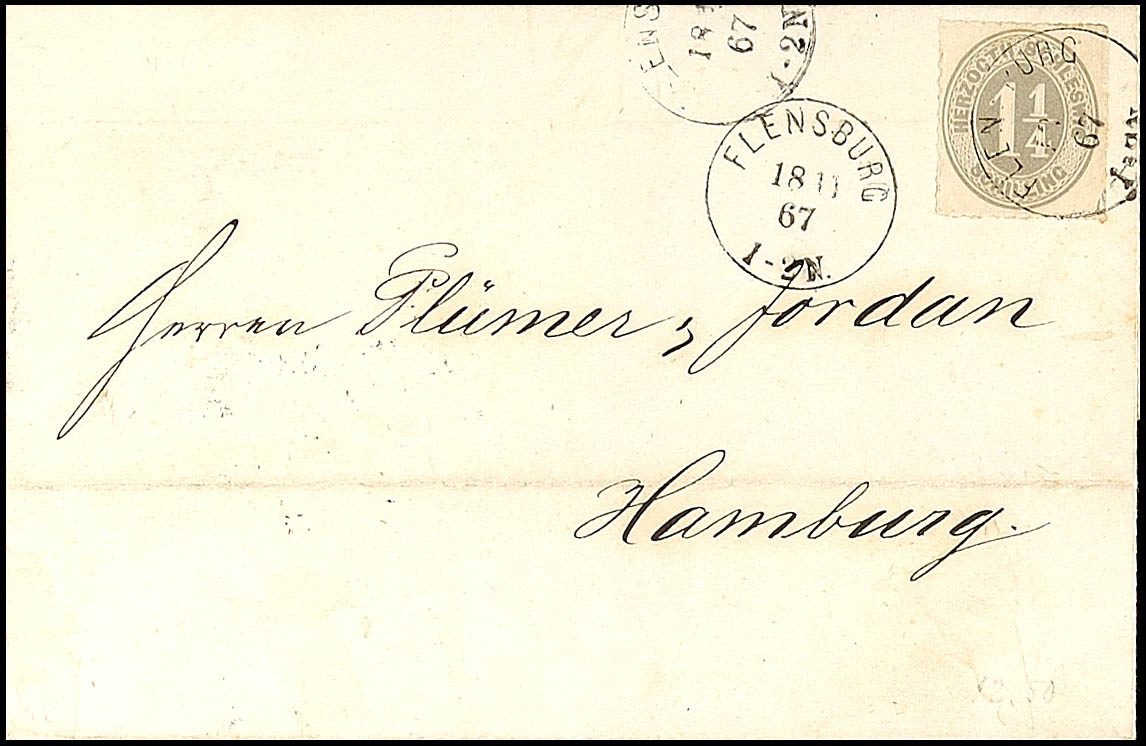 ENS
18
67
1-2N
FLENSBURG
18 11
67
1-2N.
HERZOGTH. SCHLESW.
1 1/4
SCHILLING
FLENSBURG
67
Herren Plümer & Jordan
Hamburg.